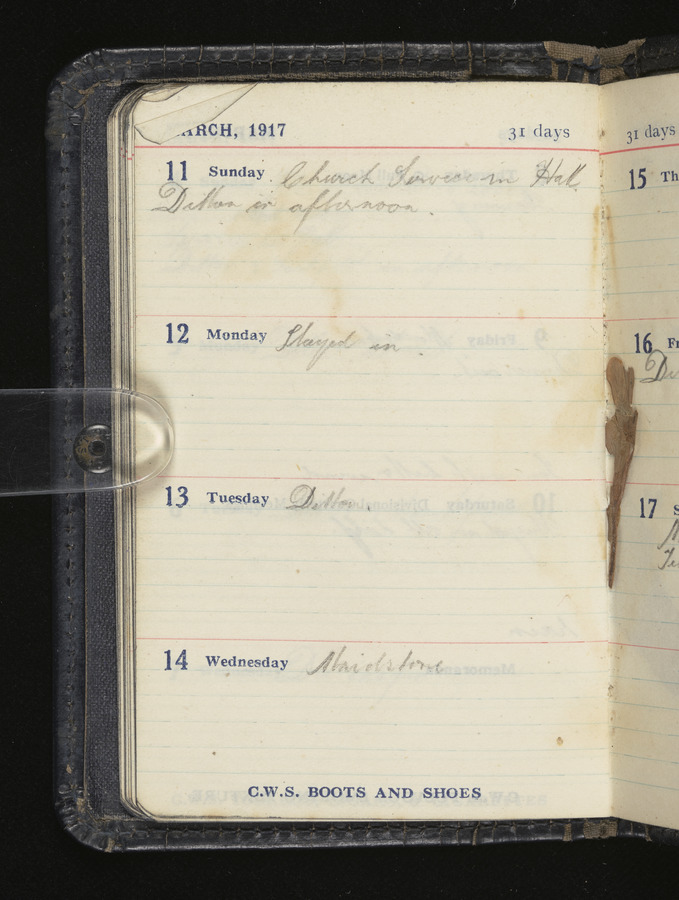 ARCH, 1917 31 days
11 Sunday. Church Service in Hall.
Ditton in afternoon.
12 Monday Stayed in.
13 Tuesday Ditton
14 Wednesday Maidstone
C.W.S. BOOTS AND SHOES
31 days
15 Th
16 Fr
17 S